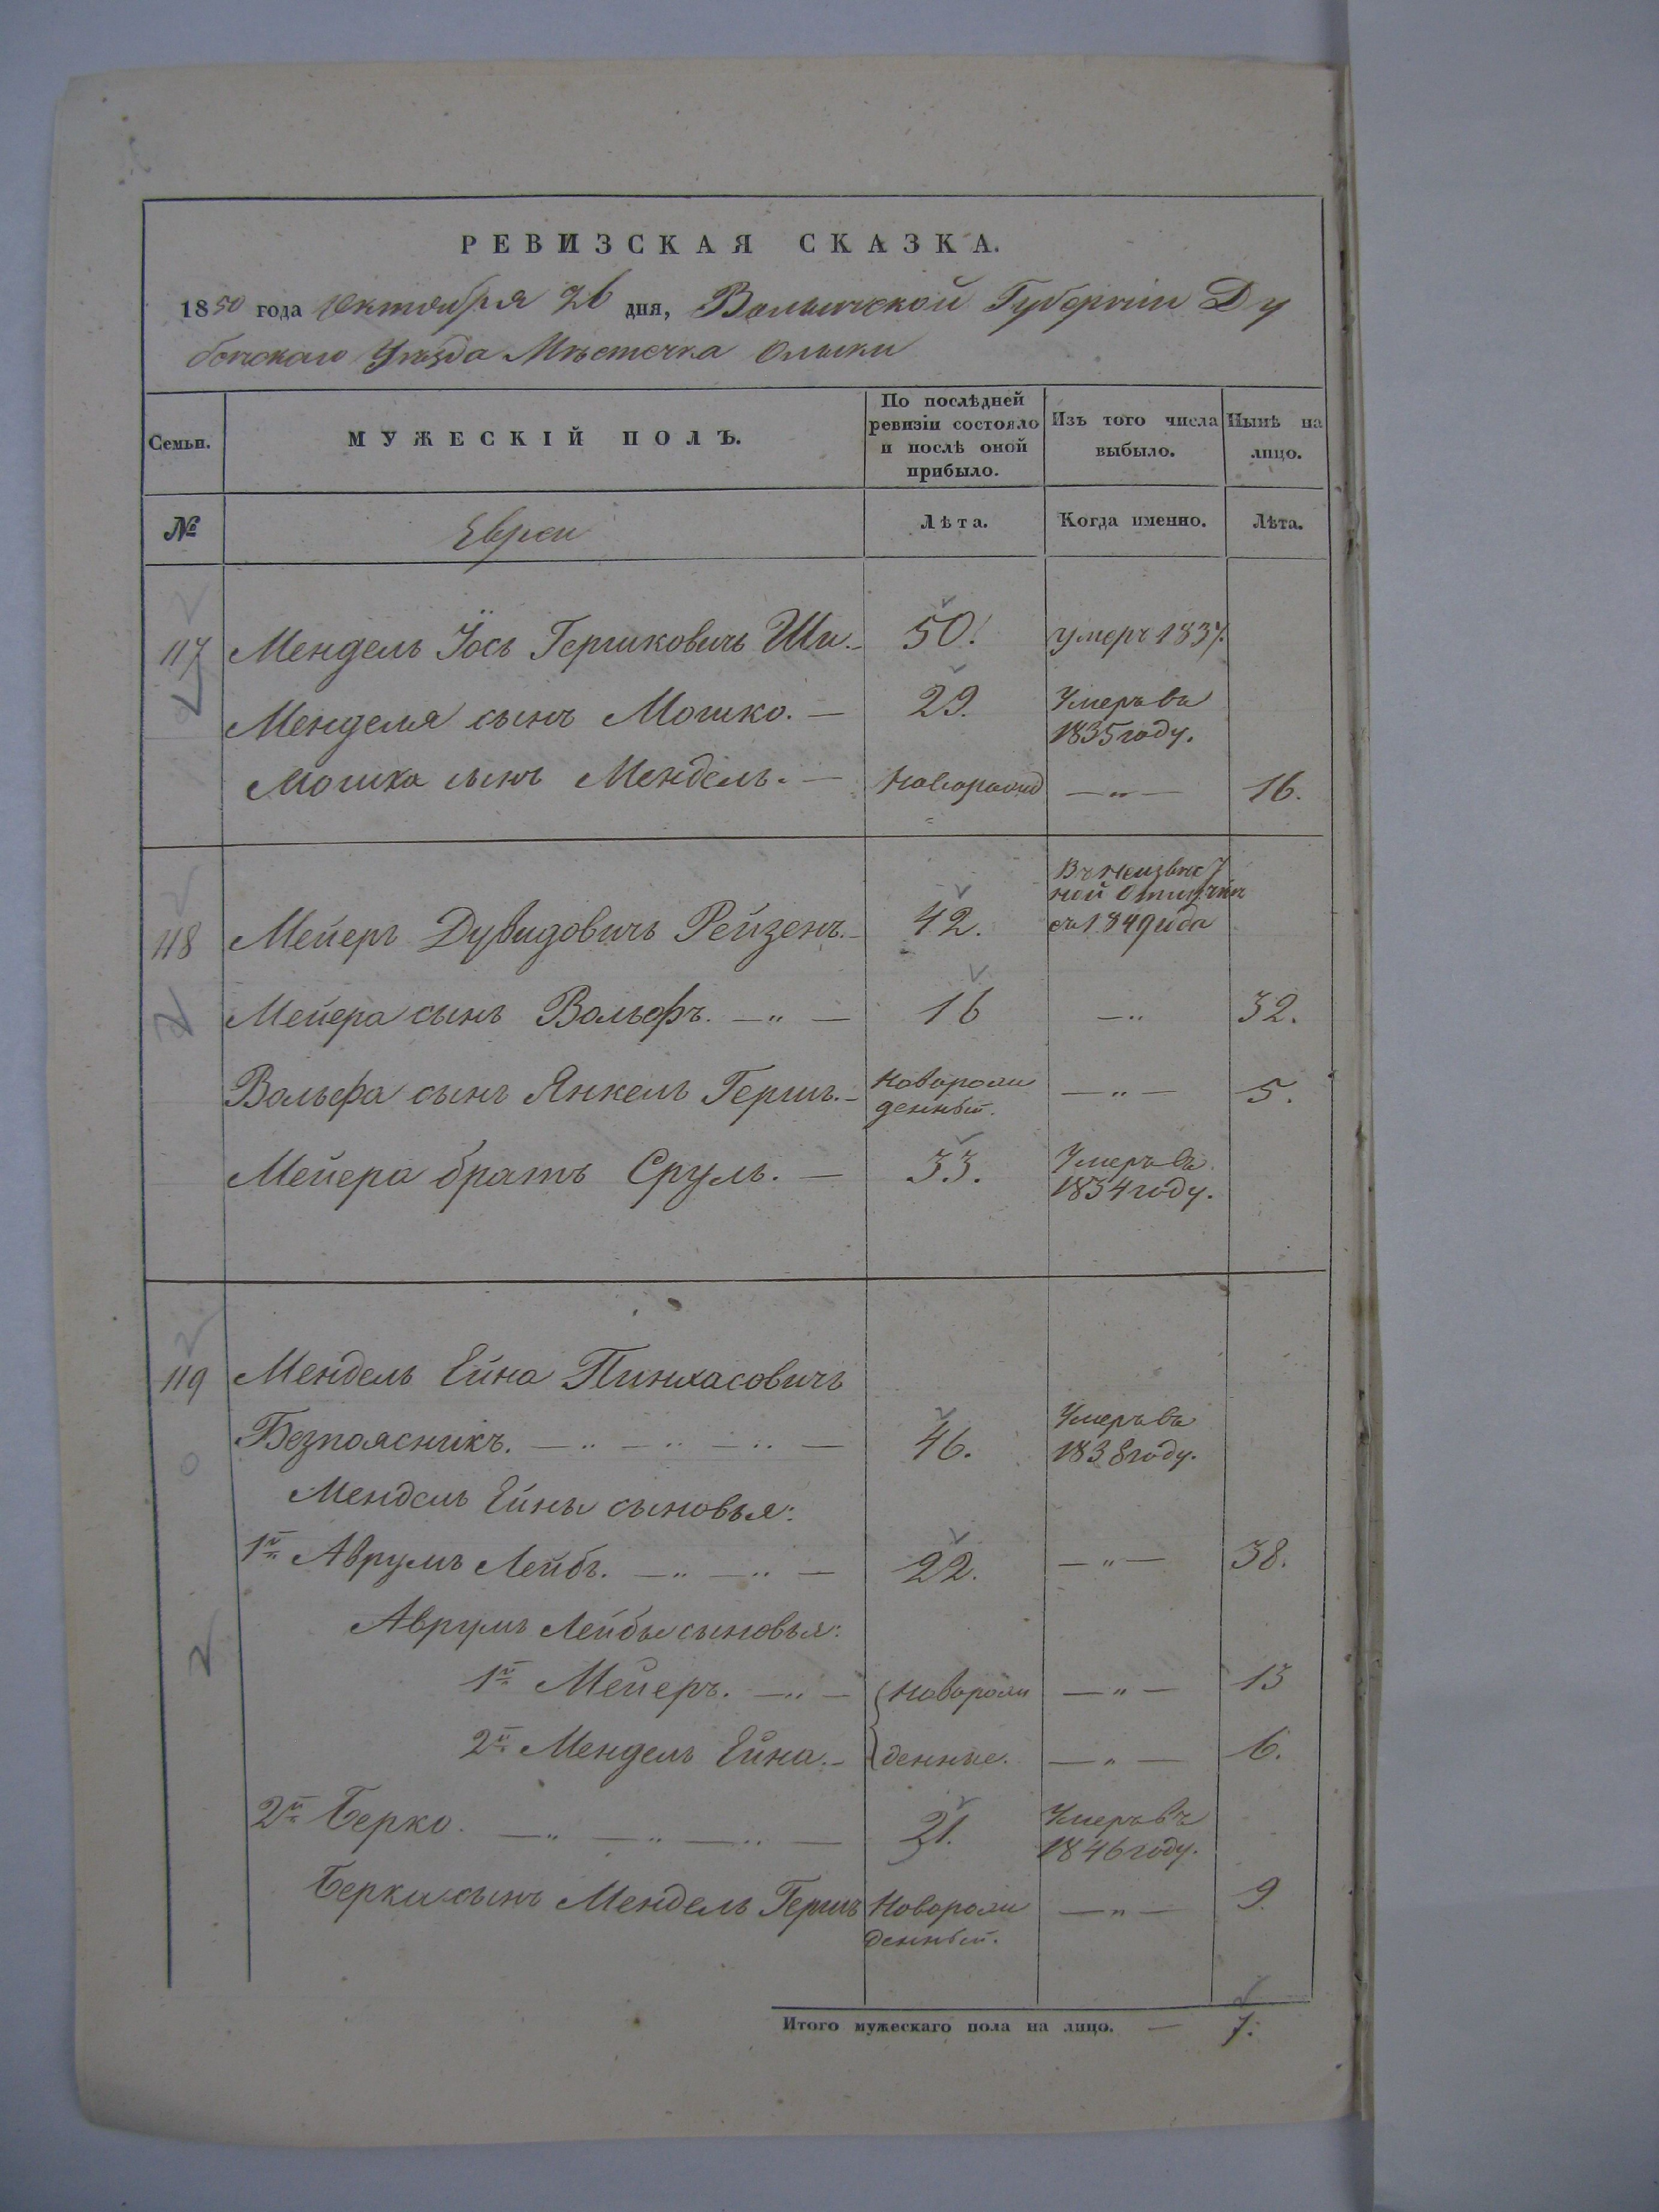 РЕВИЗСКАЯ СКАЗКА.
1850 года Октября 26 дня, Волынской Губернiи Ду
бенскаго Уѣзда Мѣстечка Олыки
Семьи.
МУЖЕСКIЙ ПОЛЪ.
По послѣдней ревизiи состояло и послѣ оной прибыло.
Изъ того числа выбыло.
Нынѣ на лицо.
№ Евреи Лѣта. Когда именно. Лѣта.
117 Мендель Іось Гершковичъ Ши.- 50. умеръ 1837.
Менделя сынъ Мошко. — 29. Умеръ въ
1835 году.
Мошка сынъ Мендель. — Новорожд — „ — 16.
118 Мейеръ Дувидовичъ Рейзенъ. - 42. Въ неизвѣс
ной отлучкѣ
съ 1849 года
Мейера сынъ Вольфъ. — „ — 16 — „ 32.
Вольфа сынъ Янкель Гершъ. - Новорож
денный. — „ — 5.
Мейера братъ Сруль. — 33. Умеръ въ
1834 году.
119 Мендель Ейна Пинхасовичъ
Безпоясникъ. — „ — „ — „ — 46. Умеръ въ
1838 году.
Мендель Ейны сыновья:
1й Аврумъ Лейбъ. — „ — „ — 22. — „ — 38.
Аврумъ Лейбы сыновья:
1й Мейеръ. — „ — Новорож — „ — 13
2й Мендель Ейна. - денные. — „ — 6.
2й Берко. — „ — „ — „ — 21. Умеръ въ
1846 году.
Берки сынъ Мендель Гершъ Новорож
денный. — „ — 9.
Итого мужескаго пола на лицо. — 7.